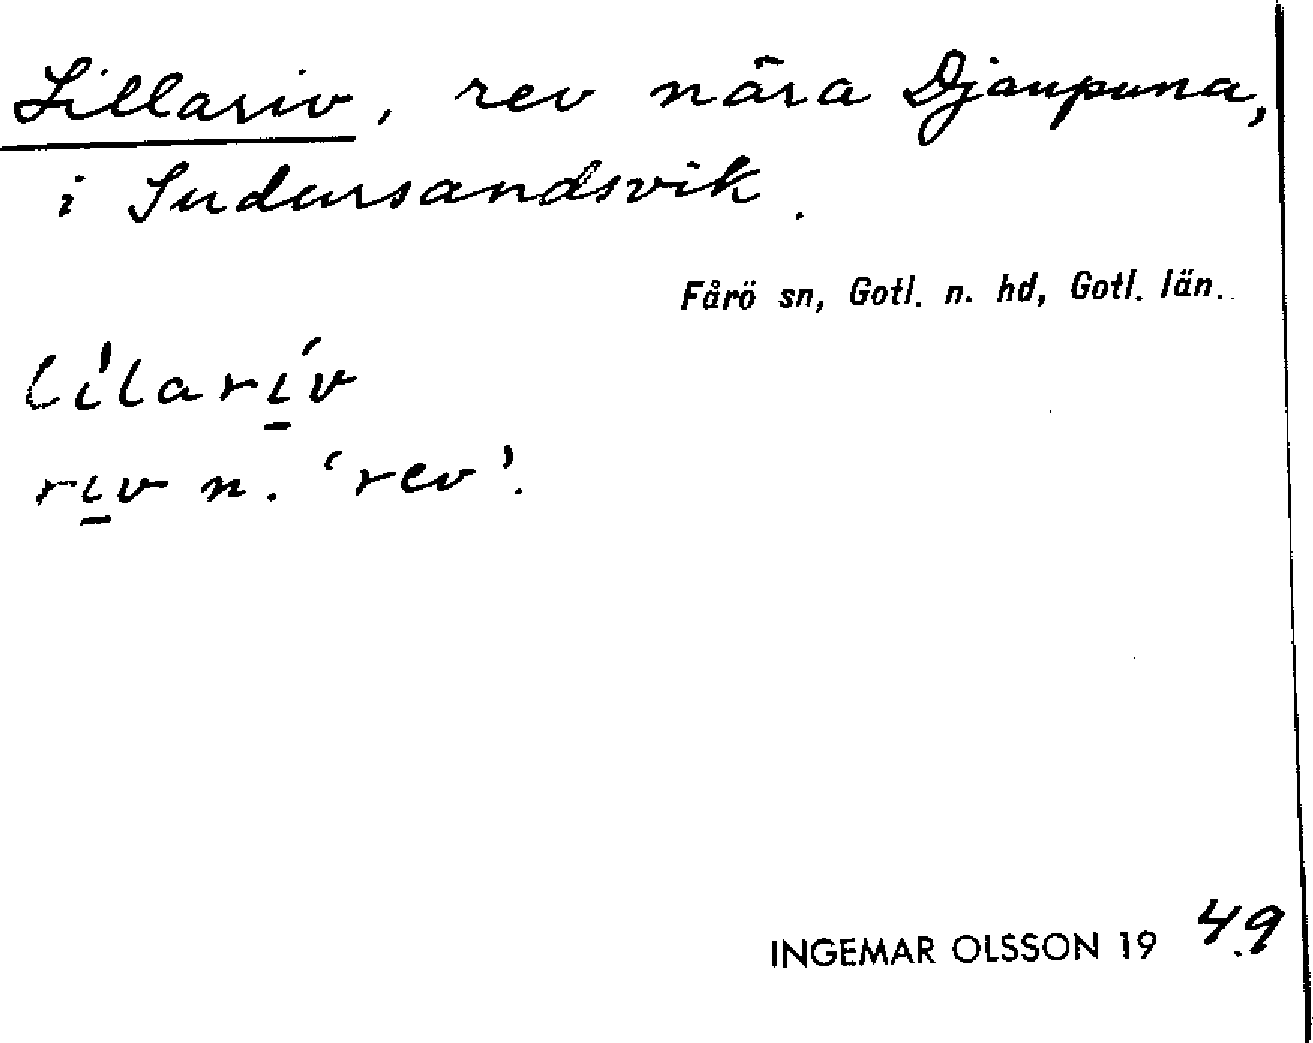 Lillariv, rev nära Djaupuna,
i Sudersandsvik.
Fårö sn, Gotl. n. hd, Gotl. län.
li̍ları̱́v
rı̱v n. 'rev'.
INGEMAR OLSSON 19 49